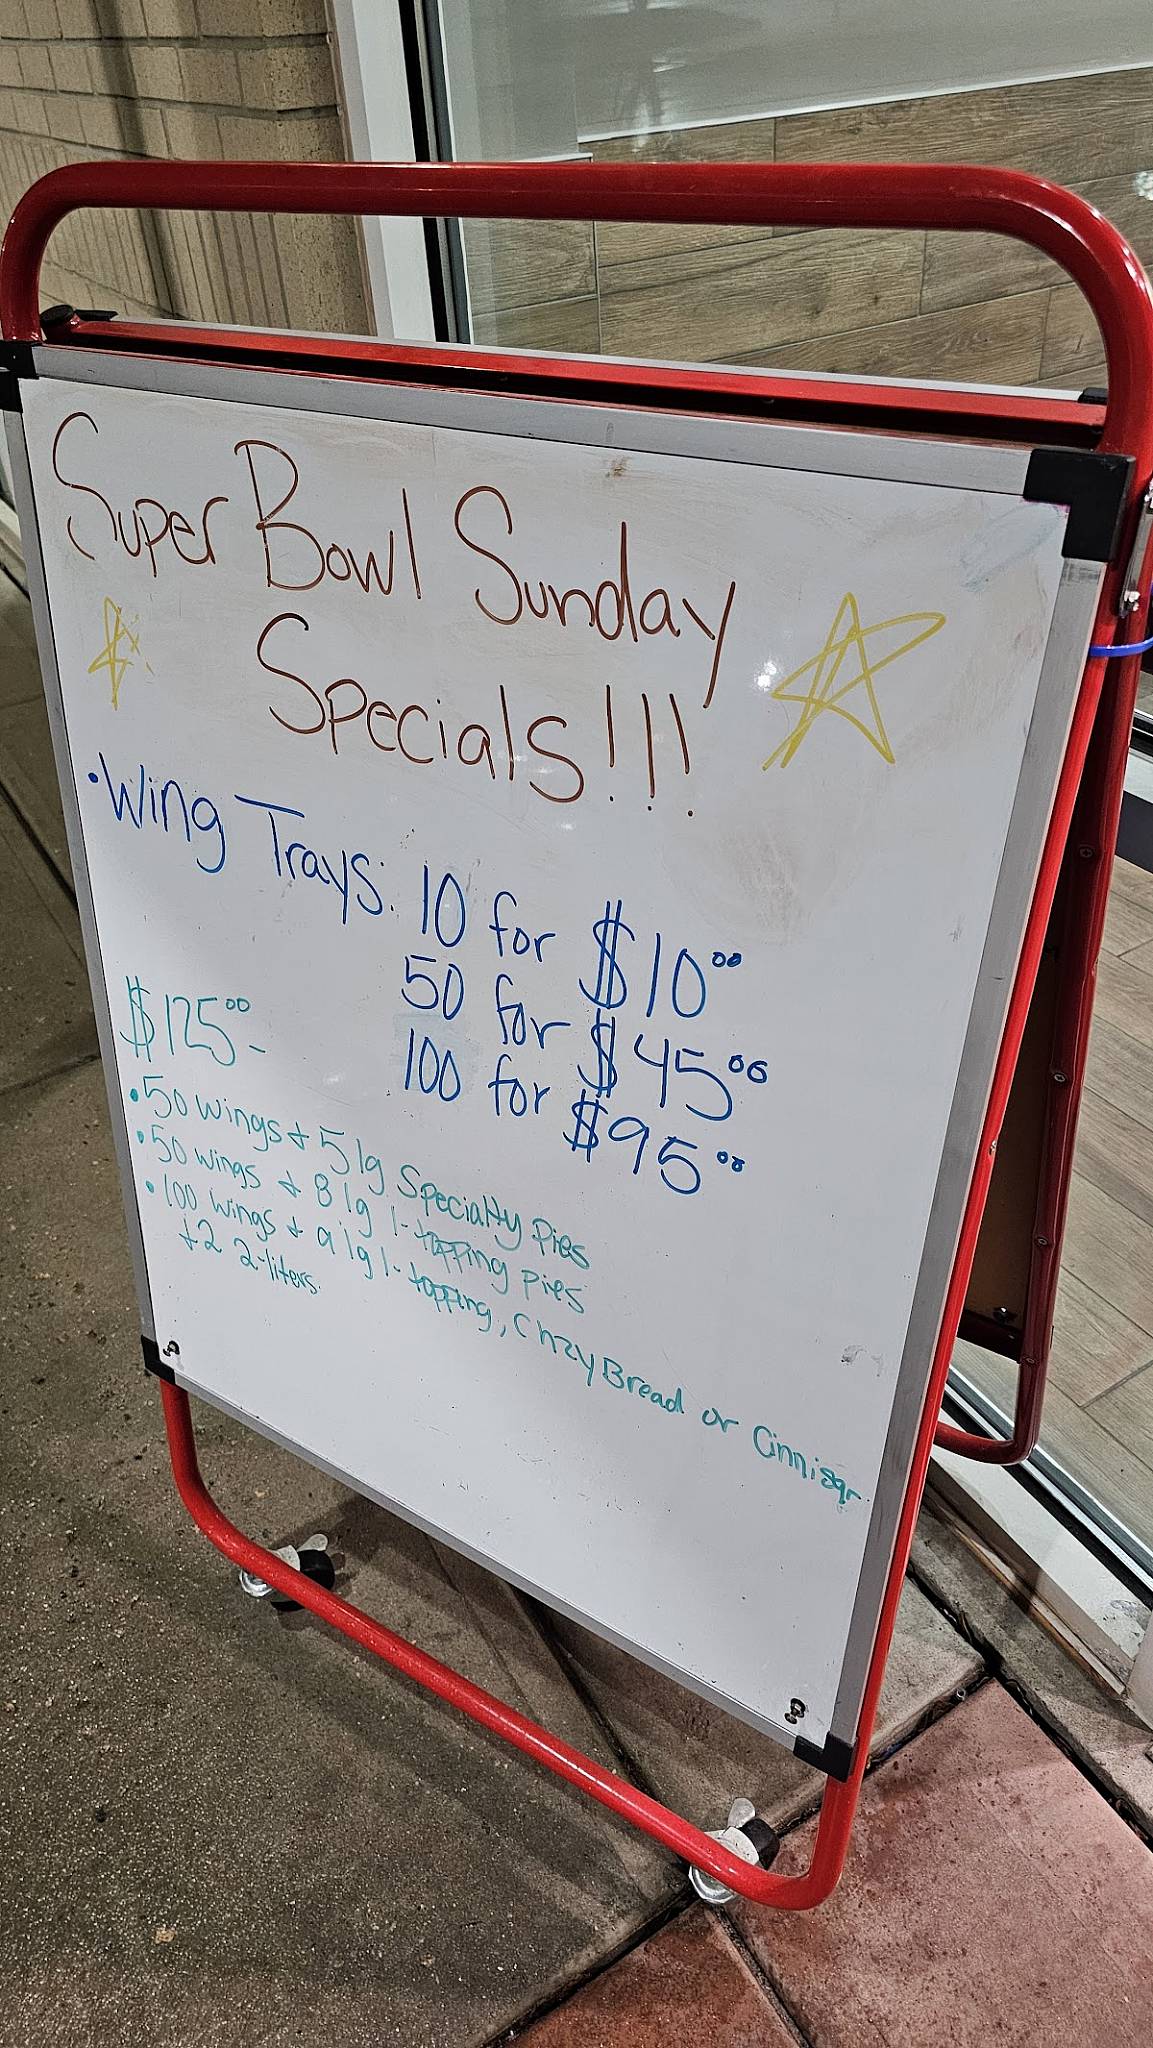 Super Bowl Sunday
Specials!!!
• Wing Trays: 10 for $10.00
50 for $45.00
100 for $95.00
$125.00 -
• 50 wings + 5 lg Specialty Pies
• 50 wings + 8 lg 1-topping pies
• 100 wings + 9 lg 1-topping, Crazy Bread or Cinnisqr
+ 2 2-liters.